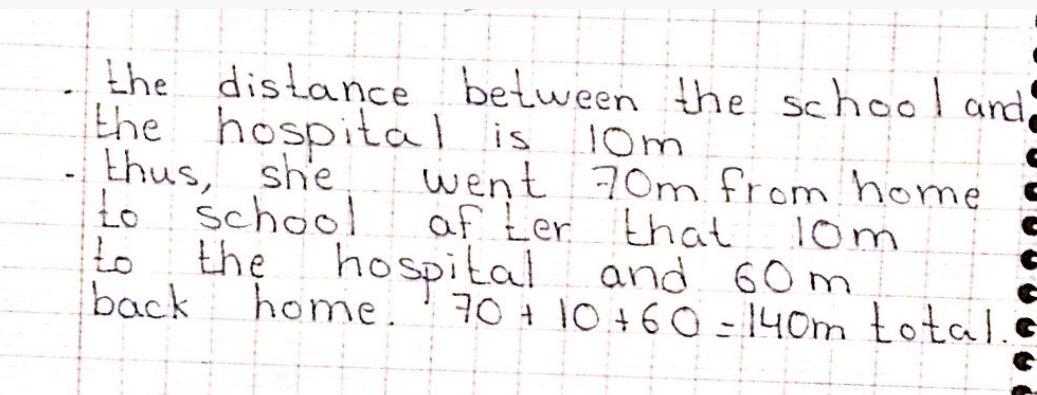 . the distance between the school and
the hospital is 10m
- thus, she went 70m from home
to school after that 10m
to the hospital and 60m
back home. 70 + 10 + 60 = 140m total.